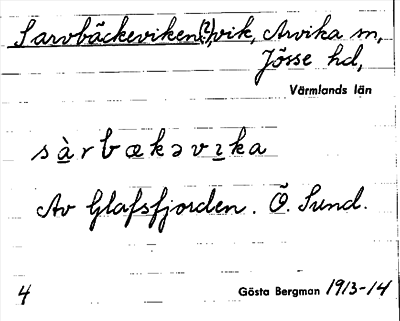 Sarvbäckeviken(?), vik, Arvika sn,
Jösse hd,
Värmlands län
sàrbækəvɪka
Av Glafsfjorden. Ö. Sund.
4
Gösta Bergman 1913-14